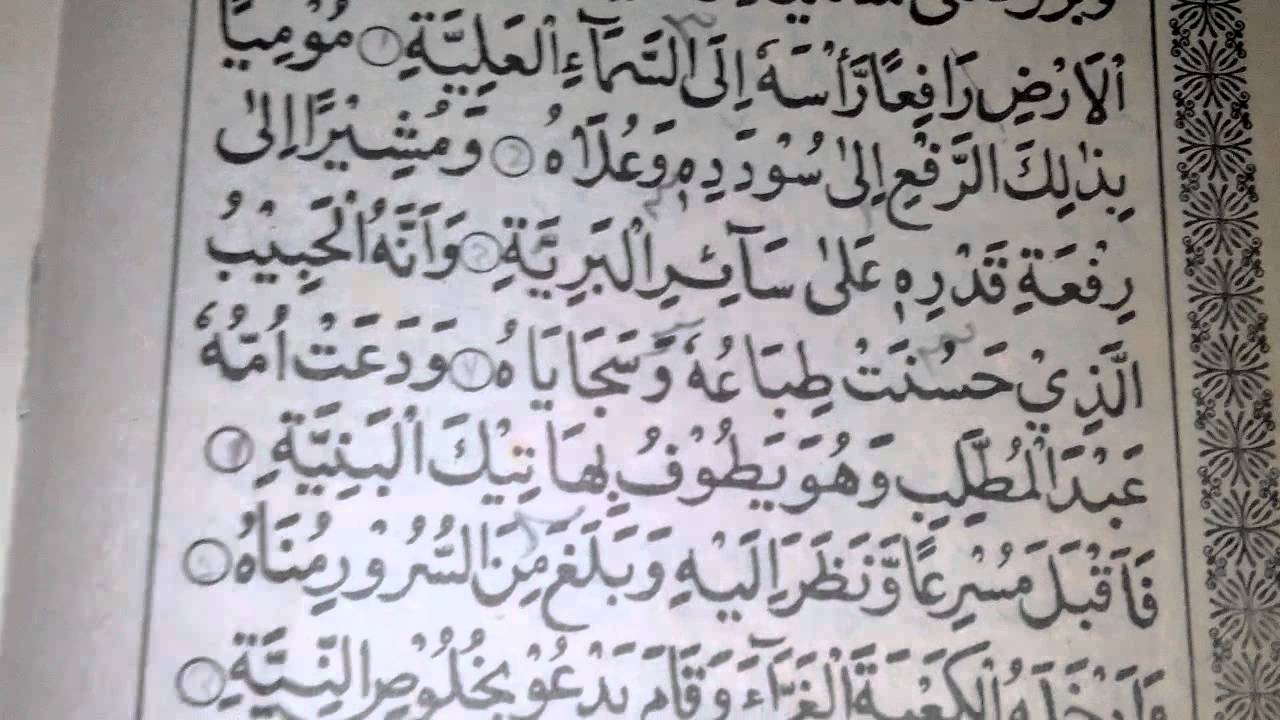 الْاَرْضِ رَافِعًا رَّأْسَهٗ اِلَى السَّمَآءِ الْعَلِيَّةِ ۝ مُوْمِيًا
بِذٰلِكَ الرَّفْعِ اِلىٰ سُوْدَدِهٖ وَعُلَاهُ ۝ وَمُشِيْرًا اِلىٰ
رِفْعَةِ قَدْرِهٖ عَلىٰ سَآئِرِ الْبَرِيَّةِ ۝ وَاَنَّهُ الْحَبِيْبُ
الَّذِيْ حَسُنَتْ طِبَاعُهٗ وَسَجَايَاهُ ۝ وَدَعَتْ اُمُّهٗ
عَبْدَ الْمُطَّلِبِ وَهُوَ يَطُوْفُ بِهَاتِيْكَ الْبَنِيَّةِ ۝
فَاَقْبَلَ مُسْرِعًا وَّنَظَرَ اِلَيْهِ وَبَلَغَ مِنَ السُّرُوْرِ مُنَاهُ ۝
وَاَدْخَلَهُ الْكَعْبَةَ الْغَرَّآءَ وَقَامَ يَدْعُوْ بِخُلُوْصِ النِّيَّةِ ۝